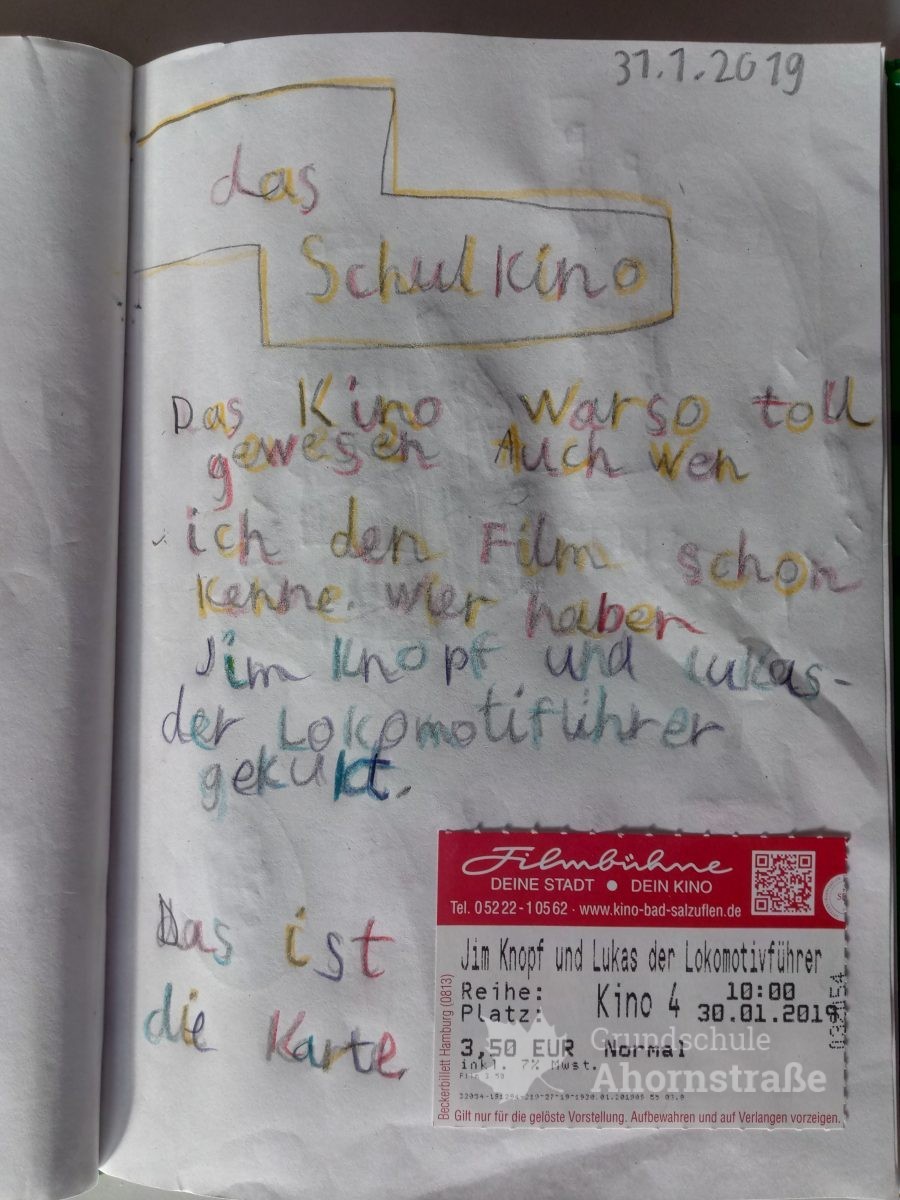 31.1.2019
das
Schulkino
Das Kino war so toll
gewesen Auch wen
ich den Film schon
kenne. wier haben
Jim Knopf und Lukas-
der Lokomotifführer
gekukt.
Das ist
die Karte
Filmbühne
DEINE STADT ● DEIN KINO
Tel. 0 52 22 - 1 05 62 · www.kino-bad-salzuflen.de
Jim Knopf und Lukas der Lokomotivführer
Reihe:
Platz:
Kino 4
10:00
30.01.2019
3,50 EUR Normal
inkl. 7% Mwst.
Gilt nur für die gelöste Vorstellung. Aufbewahren und auf Verlangen vorzeigen.
Beckerbillett Hamburg (0813)
Grundschule
Ahornstraße